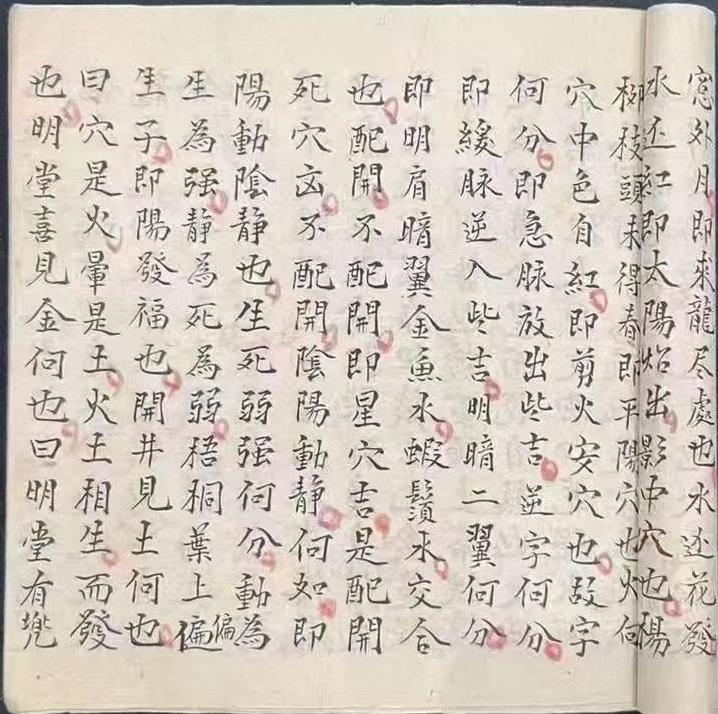 窓外月即來龍尽處也水还花發
水还紅即太陽炤出影中穴也楊
柳枝頭未得春即平陽穴也火何
穴中色自紅即剪火安穴也放字
何分即急脉放出些吉逆字何分
即緩脉逆入些吉明暗二翼何分
即明肩暗翼金魚水蝦鬚水交合
也配開不配開即星穴吉是配開
死穴凶不配開陰陽動静何如即
陽動陰静也生死弱强何分動為
生為强静為死為弱梧桐葉上偏偏
生子即陽發福也開井見土何也
曰穴是火暈是土火土相生而發
也明堂喜見金何也曰明堂有兠